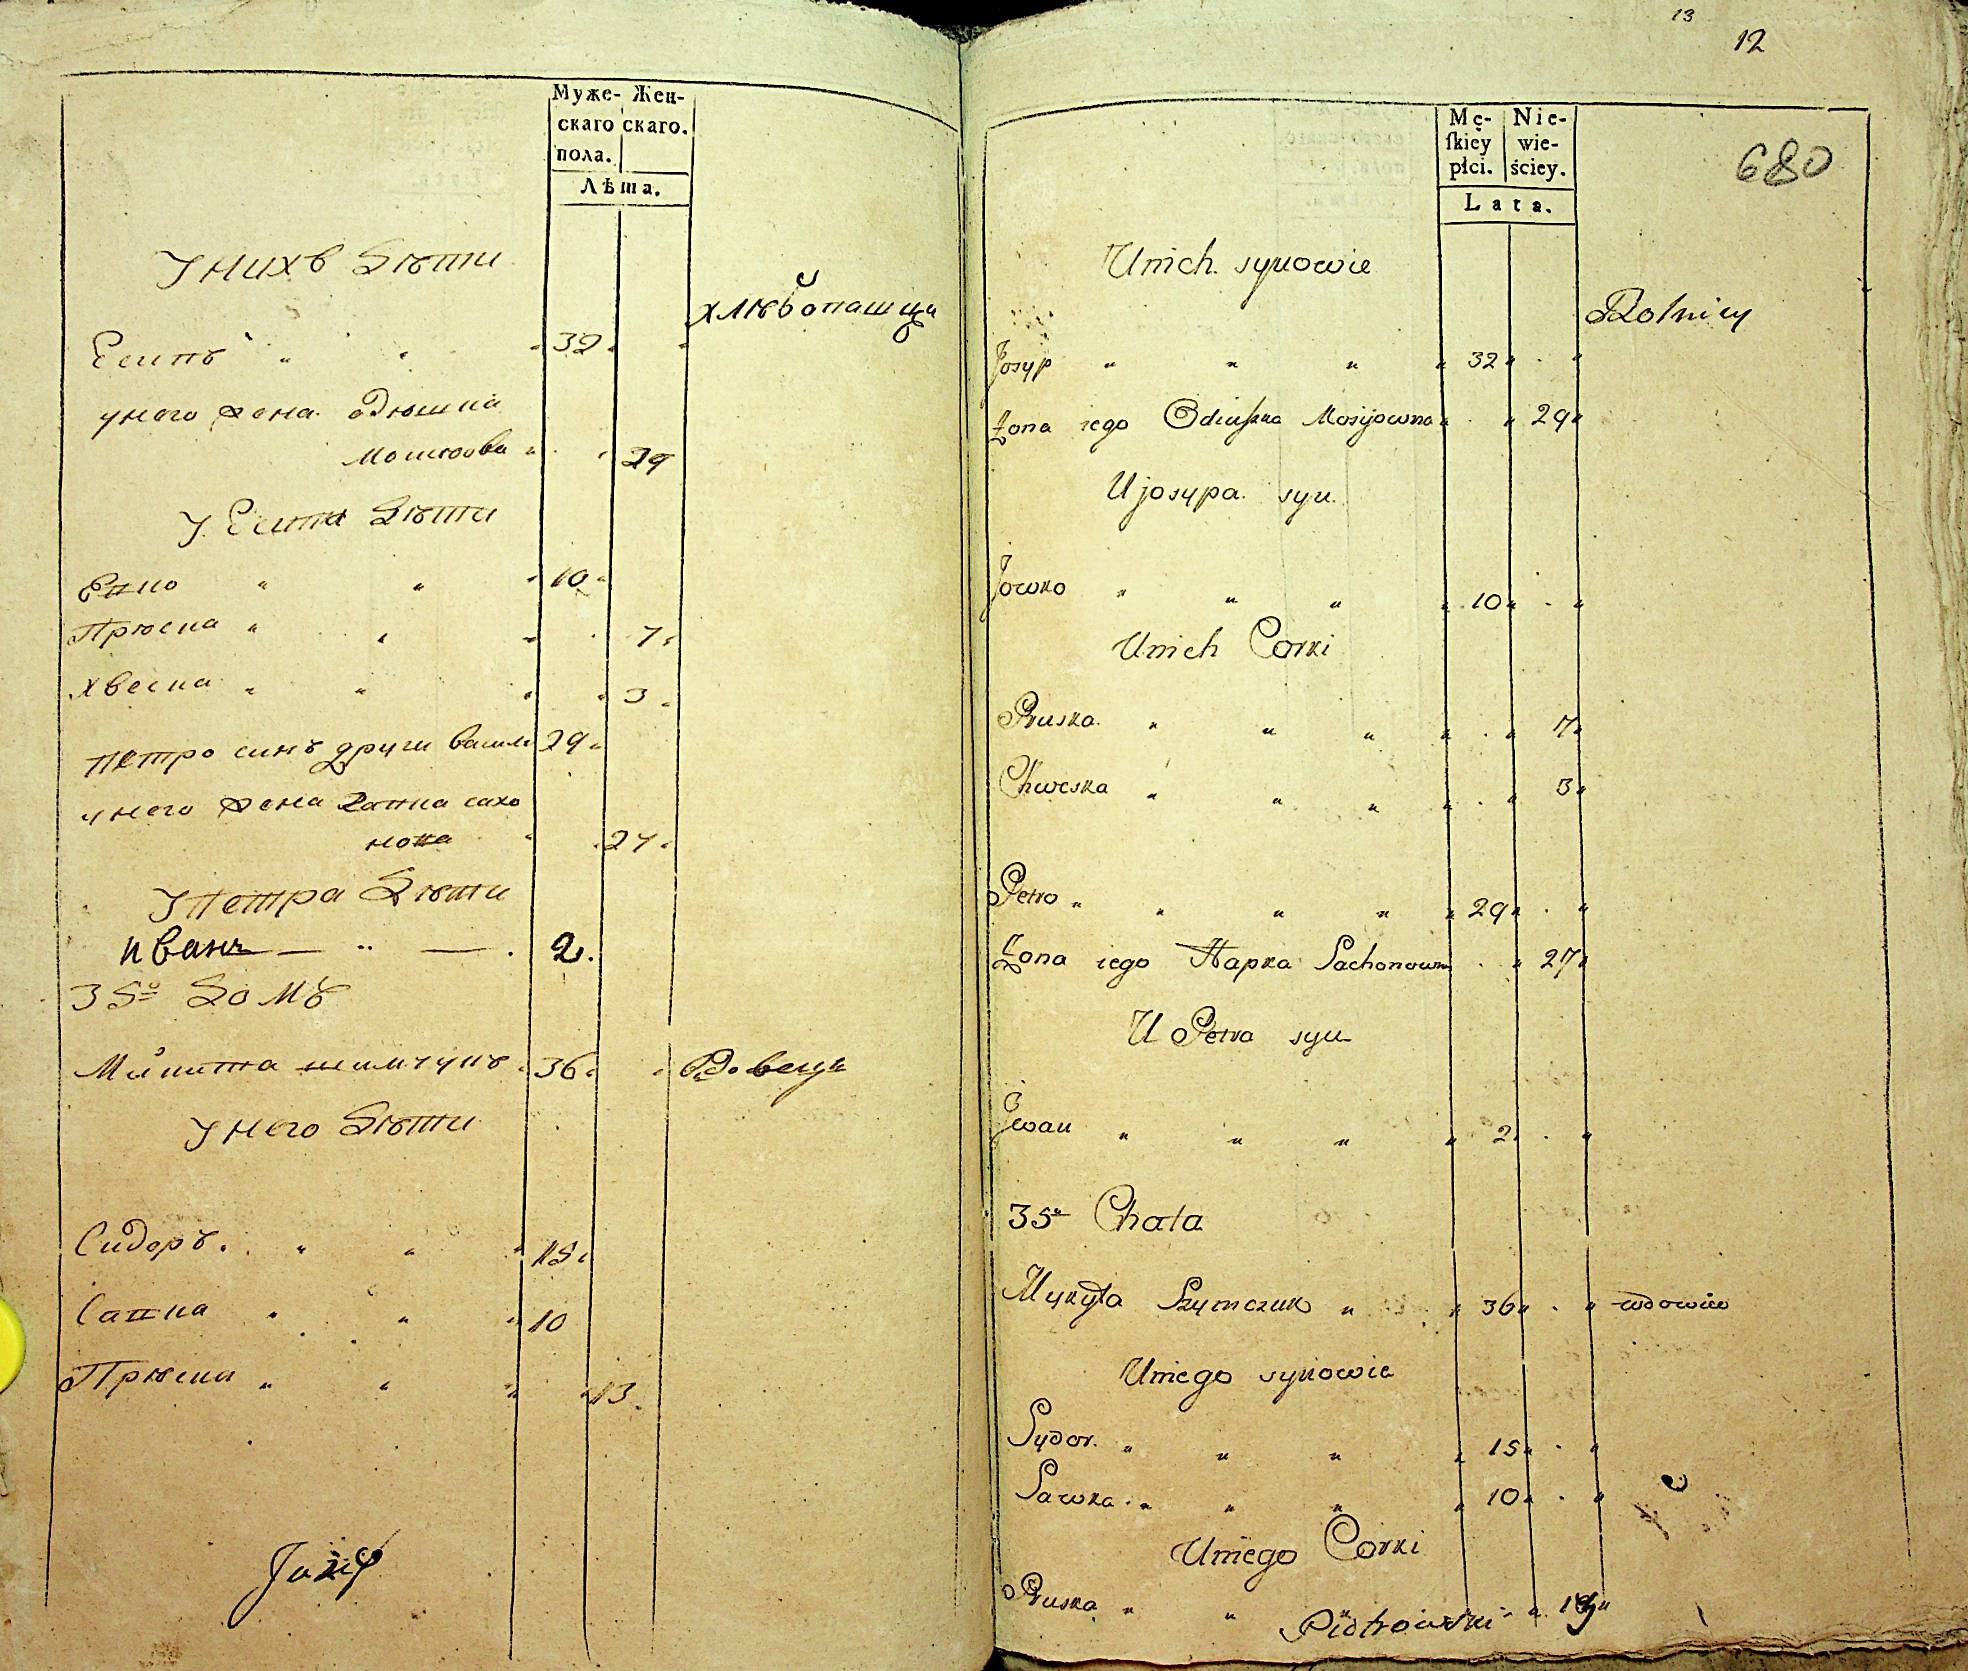 Муже- Жен-
скаго скаго.
пола.
Лѣта.
У нихъ дѣти
хлѣбопашцы
Есипъ 32
у него жена Одюшка
Мошкова 29
У Есипа дѣти
Евко 10
Прюска 7
Хвеска 3
петро синъ други 29
у него жена Гапка сахо
нова 27
У Петра дѣти
иванъ 2
35й Домъ
Микита шимчукъ 36 Вдовецъ
У него дѣти
Сидоръ 15
Савка 10
Прюска 13
Jozef
13
12
680
Mę- Nie-
ſkiey wie-
płci. ściey.
Lata.
U nich synowie
Rolnicy
Josyp 32
Żona iego Odiuszka Mosijowna 29
U josypa syn
Jowko 10
U nich Corki
Pruska 7
Chweska 3
Petro 29
Żona iego Hapka Sachonowna 27
U Petra syn
Jwan 2
35a Chata
Mykyta Szymczuk 36 wdowiec
U niego synowie
Sydor 15
Sawka 10
U niego Corki
Pruska 13
Piotrowski